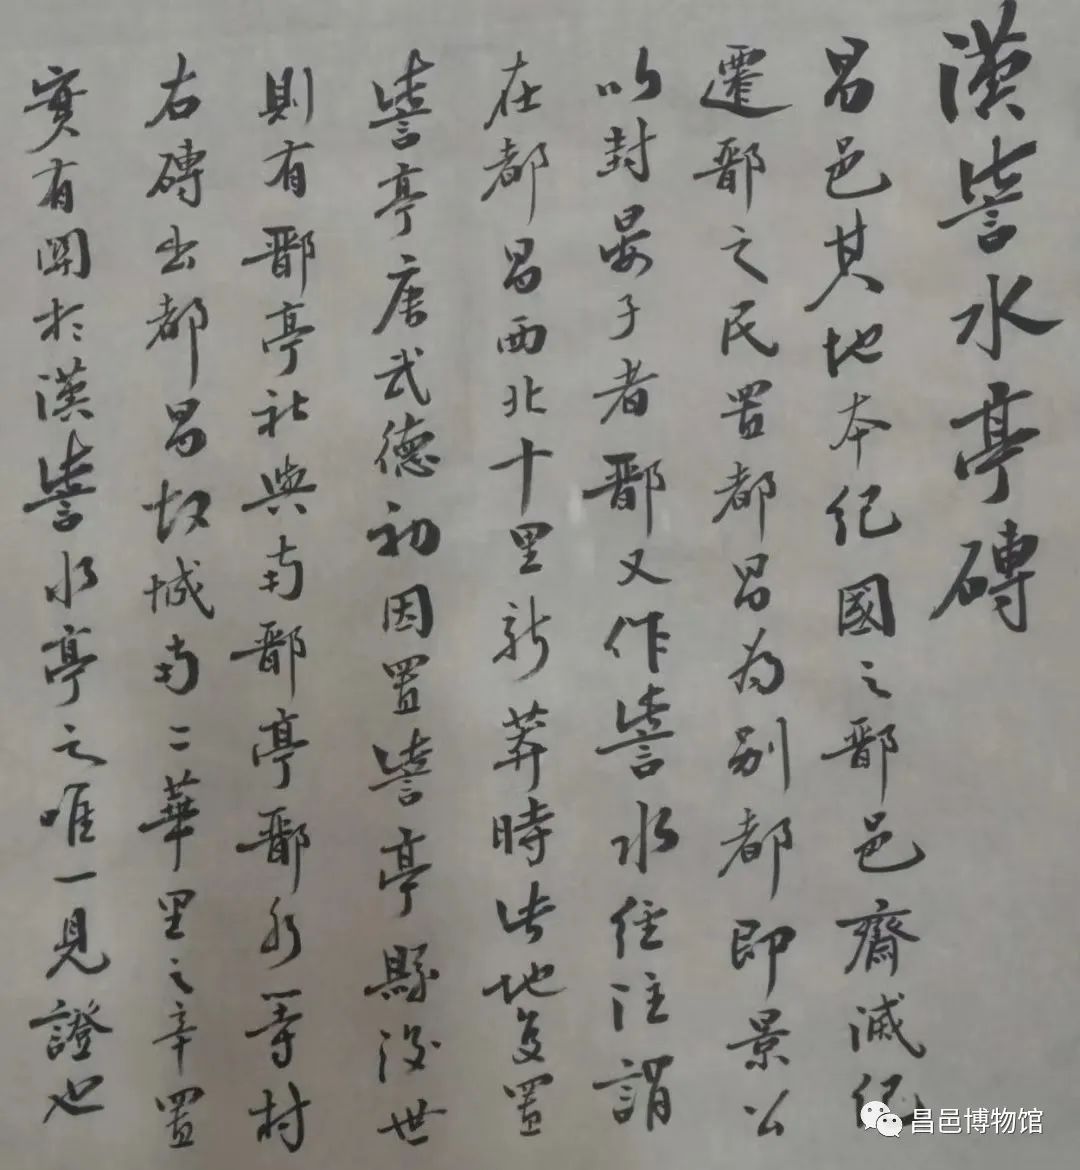 漢訾水亭磚
昌邑其地本紀國之鄑邑齋滅紀
遷鄑之民置都昌為别都即景公
以封晏子者鄑又作訾水經注謂
在都昌西北十里新莽時此地复置
訾亭唐武德初因置訾亭縣後世
則有鄑亭社與南鄑亭鄑水等村
右磚出都昌故城南二華里之辛置
實有關於漢訾水亭之唯一見證也
昌邑博物馆